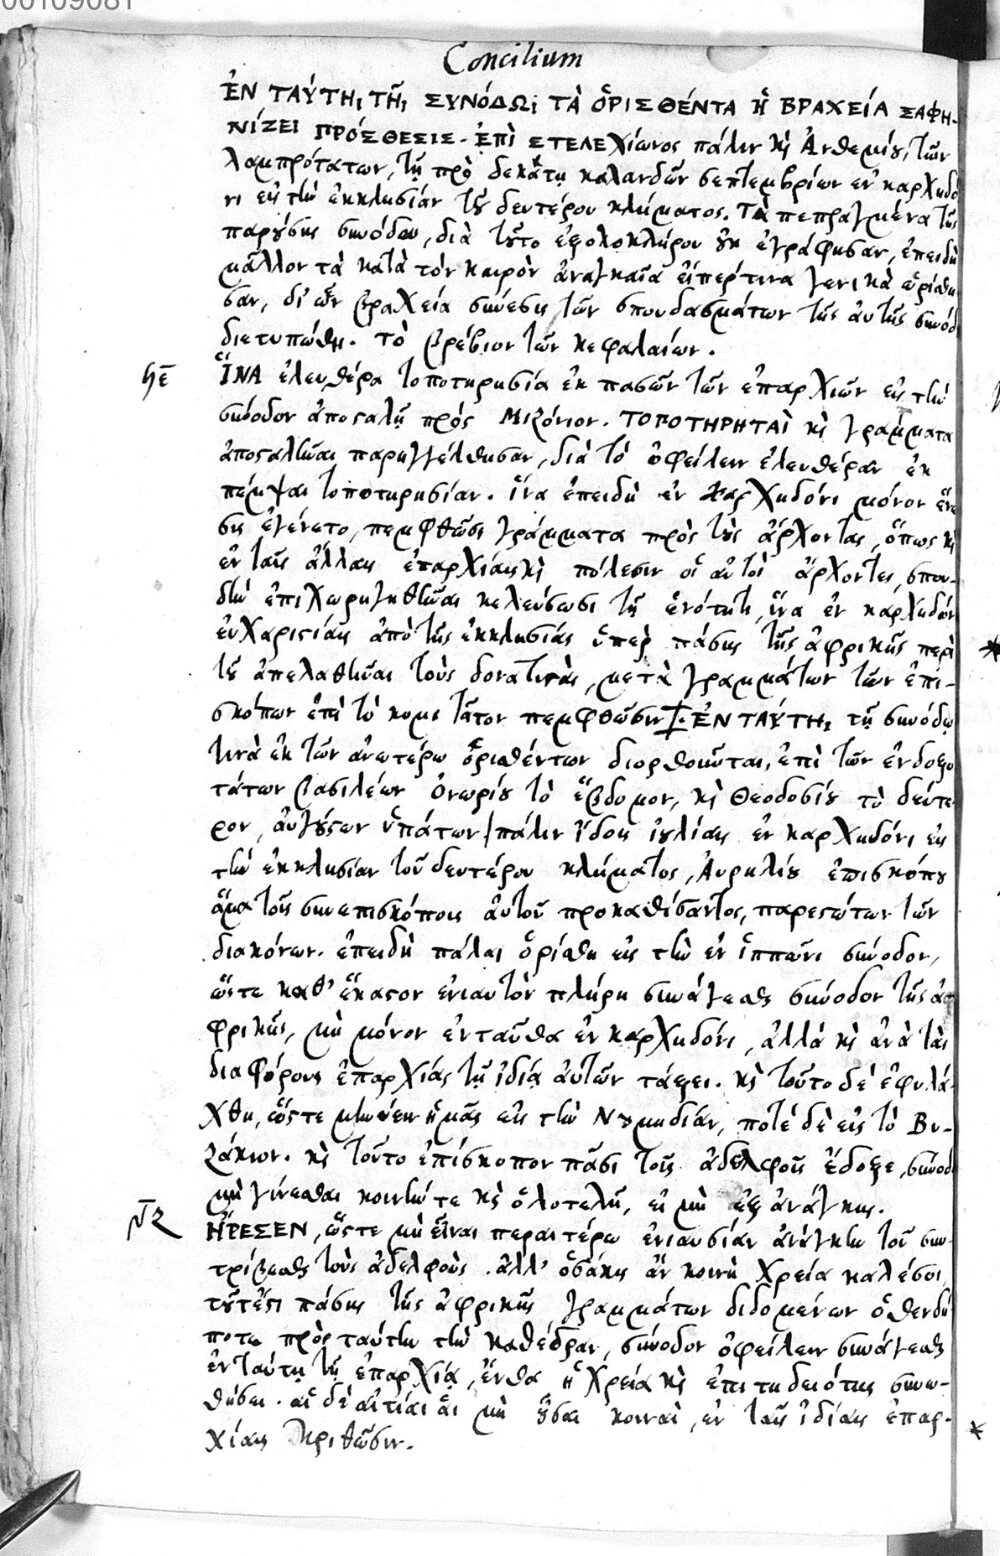 00109081
Concilium
ἘΝ ΤΑΎΤΗι ΤΗ͂ι ΣΥΝΌΔΩι ΤᾺ ὉΡΙΣΘΈΝΤΑ Ἡ ΒΡΑΧΕΊΑ ΣΑΦΗ-
ΝΊΖΕΙ ΠΡΌΣΘΕΣΙΣ. ἘΠῚ ΣΤΕΛΕΧίωνος πάλιν κỳ Ἀνθεμίου, τῶν
λαμπρότατων, τῇ πρὸ δεκάτῃ καλανδῶν σεπτεμβρίων ἐν καρχηδό
νι εἰς τὴν ἐκκλησίαν τοῦ δευτέρου κλήματος. Τὰ πεπραγμένα τῆς
παρούσης συνόδου, διὰ τοῦτο ἐξολοκλήρου οὐκ ἐγράφησαν, ἐπειδὴ
μᾶλλον τὰ κατὰ τὸν καιρὸν ἀναγκαῖα εἴπερ τινα γενικὰ ὡρίσθη
σαν, δι' ὧν βραχεία σύνεσις τῶν σπουδασμάτων τῆς αὐτῆς συνόδ
διετυπώθη. τὸ βρέβιον τῶν κεφαλαίων.
ϟε ἽΝΑ ἐλευθέρα τοποτηρησία ἐκ πασῶν τῶν ἐπαρχιῶν εἰς τὴν
σύνοδον ἀποσταλῇ πρὸς Μιζόνιον. ΤΟΠΟΤΗΡΗΤΑῚ κỳ γράμματα
ἀποσταλῆναι παρηγγέλθησαν, διὰ τὸ ὀφείλειν ἐλευθέραν ἐκ
πέμψαι τοποτηρησίαν. ἵνα ἐπειδὴ ἐν Καρχηδόνι μόνον ἕνω
σις ἐγένετο, πεμφθῶσι γράμματα πρὸς τοὺς ἄρχοντας, ὅπως κỳ
ἐν ταῖς ἄλλαις ἐπαρχίαις κỳ πόλεσιν οἱ αὐτοὶ ἄρχοντες, σπου-
δὴν ἐπιχωρηγηθῆναι κελεύσωσι τῇ ἑνότητι, ἵνα ἐν καρχηδόν
εὐχαριστίαις ἀπὸ τῆς ἐκκλησίας ὑπὲρ πάσης τῆς ἀφρικῆς περὶ *
τοῦ ἀπελαθῆναι τοὺς δονατιστὰς, μετὰ γραμμάτων τῶν ἐπι-
σκόπων ἐπὶ τὸ κομιτᾶτον πεμφθῶσιν. ἘΝ ΤΑΎΤΗι τῇ συνόδῳ
τινὰ ἐκ τῶν ἀνωτέρω ὁρισθέντων διορθοῦνται, ἐπὶ τῶν ἐνδοξο
τάτων βασιλέων Ὁνωρίου τὸ ἕβδομον, κỳ Θεοδοσίου τὸ δεύτε
ρον, αὐγούστων ὑπάτων, πάλιν ἴδοις ἰουλίαις ἐν καρχηδόνι εἰς
τὴν ἐκκλησίαν τοῦ δευτέρου κλήματος, Αὐρηλίου ἐπισκόπου
ἅμα τοῖς συνεπισκόποις αὐτοῦ προκαθίσαντος, παρεστώτων τῶν
διακόνων. ἐπειδὴ πάλαι ὁρίσθη εἰς τὴν ἐν ἱππῶνι σύνοδον,
ὥστε καθ' ἕκαστον ἐνιαυτὸν πλήρη συνάγεσθαι σύνοδον τῆς ἀ
φρικῆς, μὴ μόνον ἐνταῦθα ἐν καρχηδόνι, ἀλλά κỳ ἀνὰ τὰς
διαφόρους ἐπαρχίας τῇ ἰδίᾳ αὐτῶν τάξει. κỳ τοῦτο δὲ ἐφυλά-
χθη, ὥστε μὲν ἡμᾶς εἰς τὴν Νουμιδίαν, ποτέ δὲ εἰς τὸ Βυ-
ζάκιον. κỳ τοῦτο ἐπίσκοπον πᾶσι τοῖς ἀδελφοῖς ἔδοξε, σύνοδ
μὴ γίνεσθαι κοινήν τε κỳ ὁλοτελῆ, εἰ μὴ ἐξ ἀνάγκης.
ἬΡΕΣΕΝ, ὥστε μὴ εἶναι περαιτέρω ἐνιαυσίαν ἀνάγκην τοῦ συν
τρίβεσθαι τοὺς ἀδελφούς. ἀλλ' ὁσάκις ἂν κοινὴ χρεία καλέσοι,
τοῦτέστι πάσης τῆς ἀφρικῆς γραμμάτων διδομένων ὁθενδή
ποτε πρὸς ταύτην τὴν καθέδραν, σύνοδον ὀφείλειν συνάγεσθαι
ἐν ταύτῃ τῇ ἐπαρχίᾳ, ἔνθα ἡ χρεία κỳ ἐπιτηδειότης συνω-
θήσει. αἱ δὲ αἰτίαι αἱ μὴ οὖσαι κοιναὶ, ἐν ταῖς ἰδίαις ἐπαρ- *
χίαις κριθῶσιν.